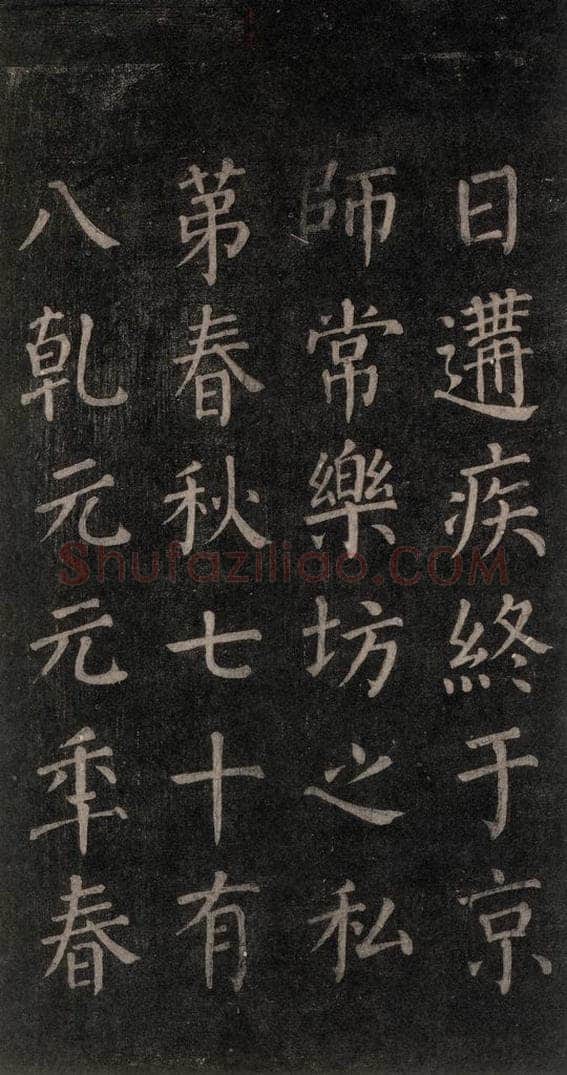 日遘疾終于京
師常樂坊之私
苐春秋七十有
八乹元元年春
Shufaziliao.COM